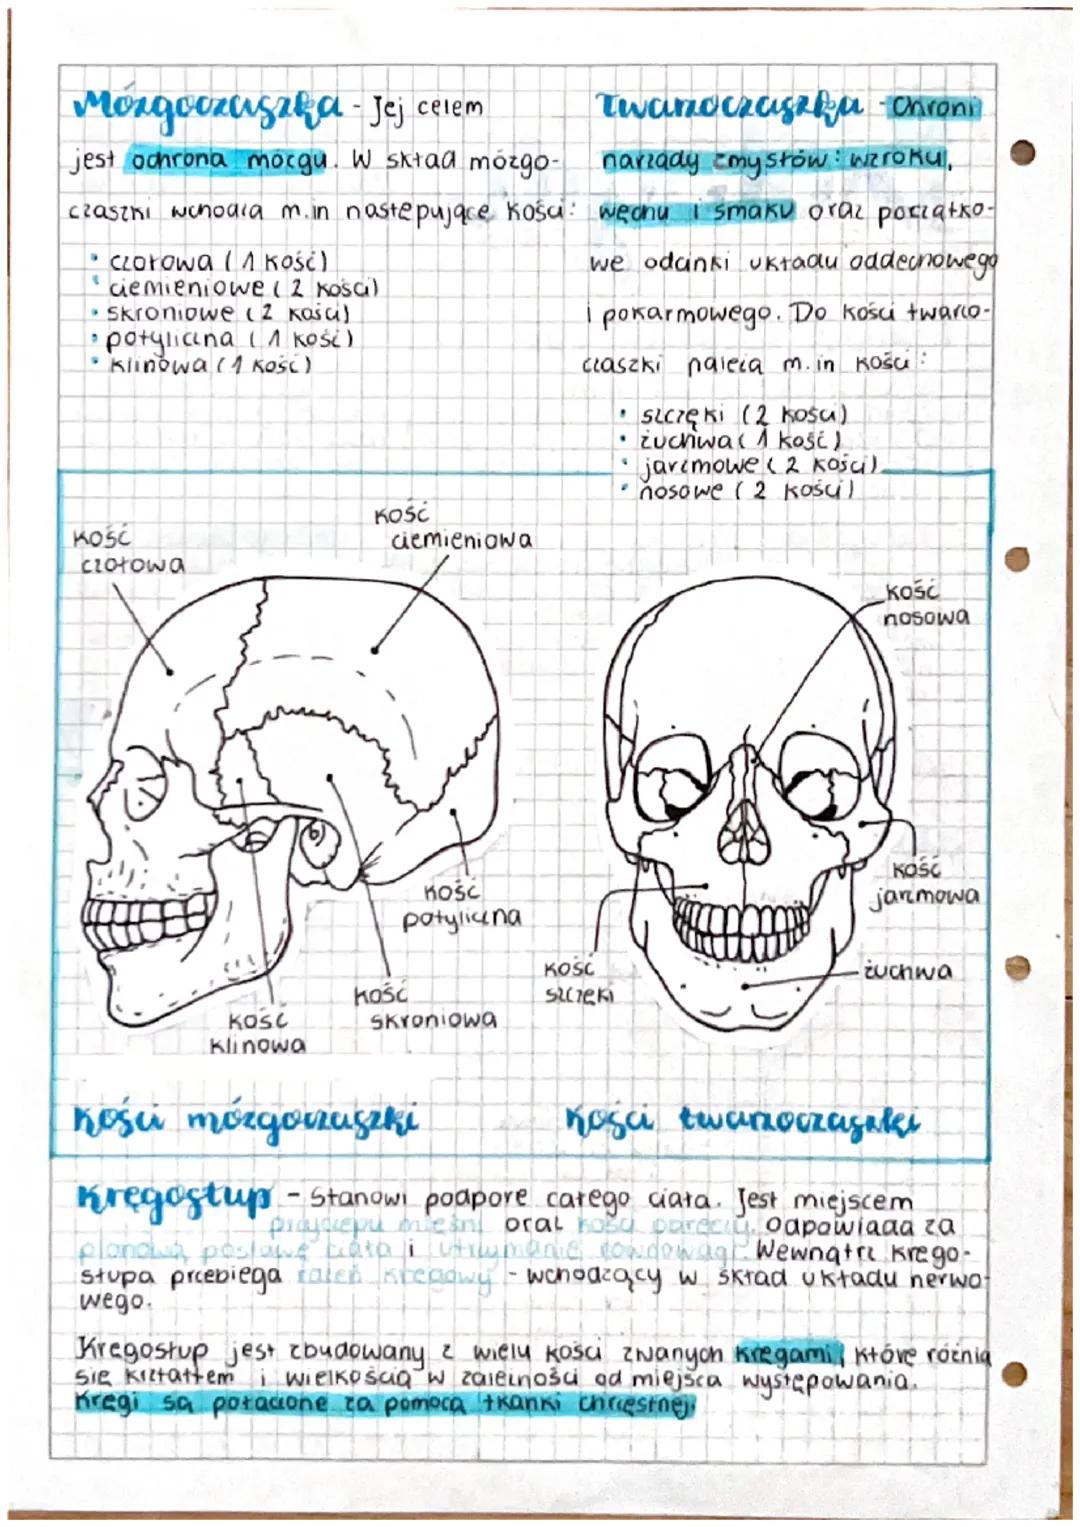 Mózgoczaszka - Jej celem
jest ochrona mózgu. W skład mózgo-
czaszki wchodzą m.in następujące kości:
• czołowa (1 kość)
• ciemieniowe (2 kości)
• skroniowe (2 kości)
• potyliczna (1 kość)
• klinowa (1 kość)
Twarzoczaszka - Chroni
narządy zmysłów: wzroku,
węchu i smaku oraz początko-
we odcinki układu oddechowego
i pokarmowego. Do kości twarzo-
czaszki należą m.in kości:
• szczęki (2 kości)
• żuchwa (1 kość)
• jarzmowe (2 kości)
• nosowe (2 kości)
kość
czołowa
kość
ciemieniowa
kość
nosowa
kość
jarzmowa
kość
potyliczna
kość
szczęki
żuchwa
kość
skroniowa
kość
klinowa
Kości mózgoczaszki
Kości twarzoczaszki
Kręgosłup - Stanowi podporę całego ciała. Jest miejscem
przyczepu mięśni oraz kości obręczy. Odpowiada za
pionową postawę ciała i utrzymanie równowagi. Wewnątrz kręgo-
słupa przebiega rdzeń kręgowy - wchodzący w skład układu nerwo-
wego.
Kręgosłup jest zbudowany z wielu kości zwanych kręgami, które różnią
się kształtem i wielkością w zależności od miejsca występowania.
Kręgi są połączone za pomocą tkanki chrzęstnej.